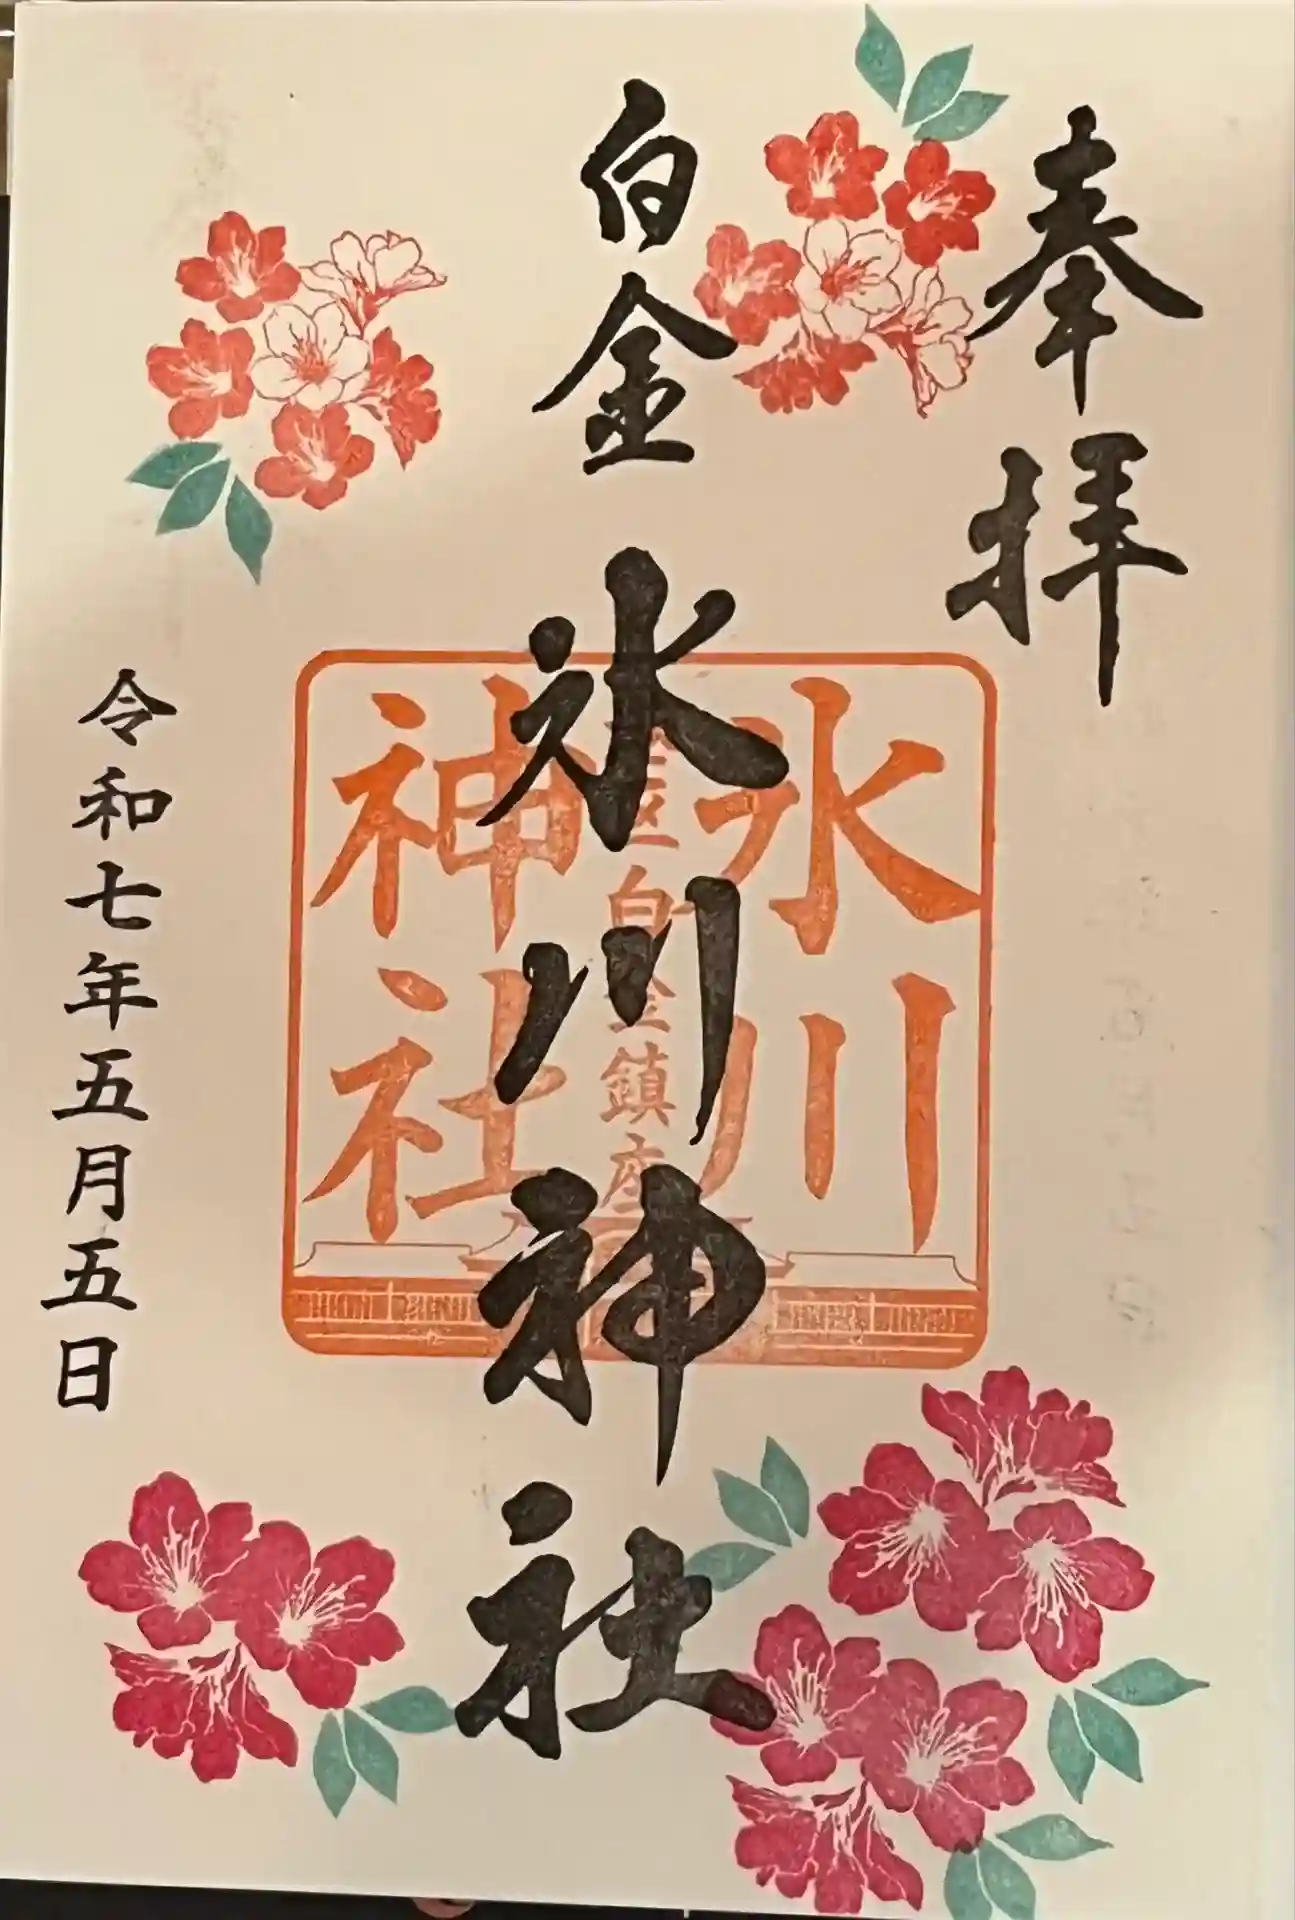 奉拝
白金氷川神社
氷川
白金鎮座
神社
令和七年五月五日